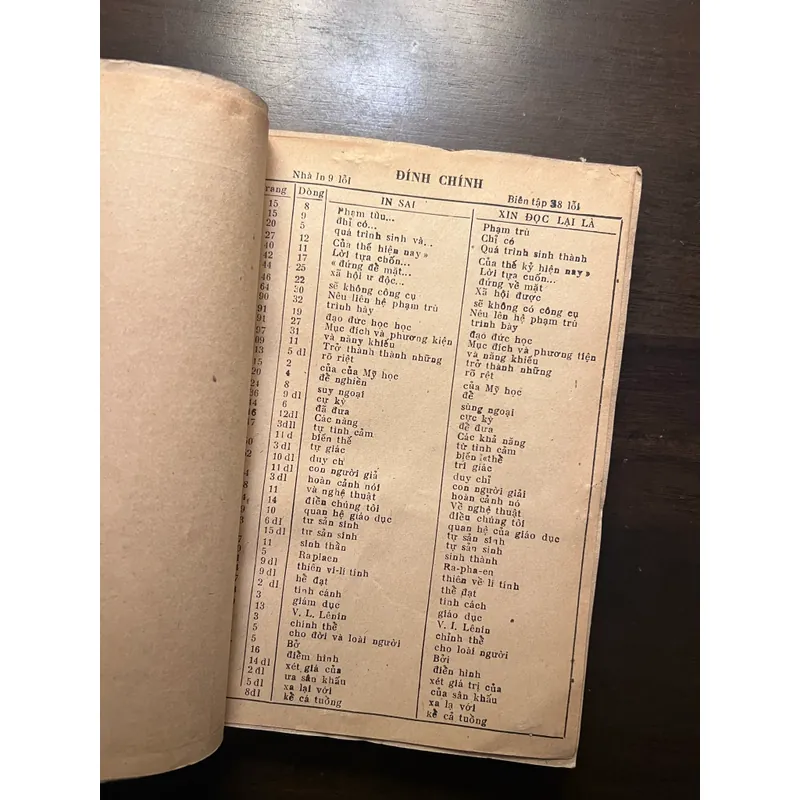 Nhà In 9 lỗi ĐÍNH CHÍNH Biên tập 38 lỗi
Trang Dòng IN SAI XIN ĐỌC LẠI LÀ
15 8 Phạm từu... Phạm trù
15 9 đhỉ có... Chỉ có
20 5 quả trình sinh và.. Quá trình sinh thành
27 12 Của thế hiện nay» Của thế kỷ hiện nay»
40 11 Lời tựa chốn... Lời tựa cuốn...
42 17 «đứng đề mặt... đứng về mặt
44 25 xã hội ư độc... Xã hội được
46 22 sẽ không công cụ sẽ không có công cụ
64 30 Nêu liên hệ phạm trù Nêu liên hệ phạm trù
90 32 trình hày trình bày
19 đạo đức học học đạo đức học
27 Mục đích và phương kiện Mục đích và phương tiện
31 và nàny khiếu và năng khiếu
11 Trở thành thành những trở thành những
5 dl rõ riệt rõ rệt
2 của của Mỹ học của Mỹ học
4 đề nghiền đề
8 suy ngoại sùng ngoại
9 dl cự kỳ cực kỳ
6 đã đưa đề đưa
12dl Các nàng Các khả năng
3dll tự tình cảm từ tình cảm
11 d biến thế biến thế
3 dl tự giác tri giác
10 dl duy ch duy chỉ
11 dl con người giả con người giải
3 dl hoàn cảnh nói hoàn cảnh nó
11 và nghệ thuật Về nghệ thuật
14 điền chúng tôi điều chúng tôi
10 quan hệ giáo dục quan hệ của giáo dục
6 dl tư sản sinh tự sản sinh
15 dl tư sản sinh tự sản sinh
11 sinh thần sinh thành
5 Raplaen Ra-pha-en
9 dl thiên vi-li tính thiên về lí tính
2 dl hề đạt thề đạt
3 tình cảnh tình cách
13 giám dục giáo dục
3 V. L. Lênin V. I. Lênin
5 chinh thề chỉnh thề
5 cho đời và loài người cho loài người
16 Bở Bởi
14 dl điềm hình điền hình
2 dl xét giá của xét giá trị của
5 dl ưa sân khấu của sân khấu
8dl xa lại với xa lạ với
kề cả tuồng kề cả tuồng